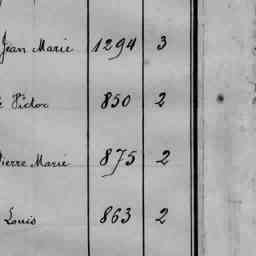 Jean Marie 1294 3
Victor 850 2
Pierre Marie 875 2
Louis 863 2